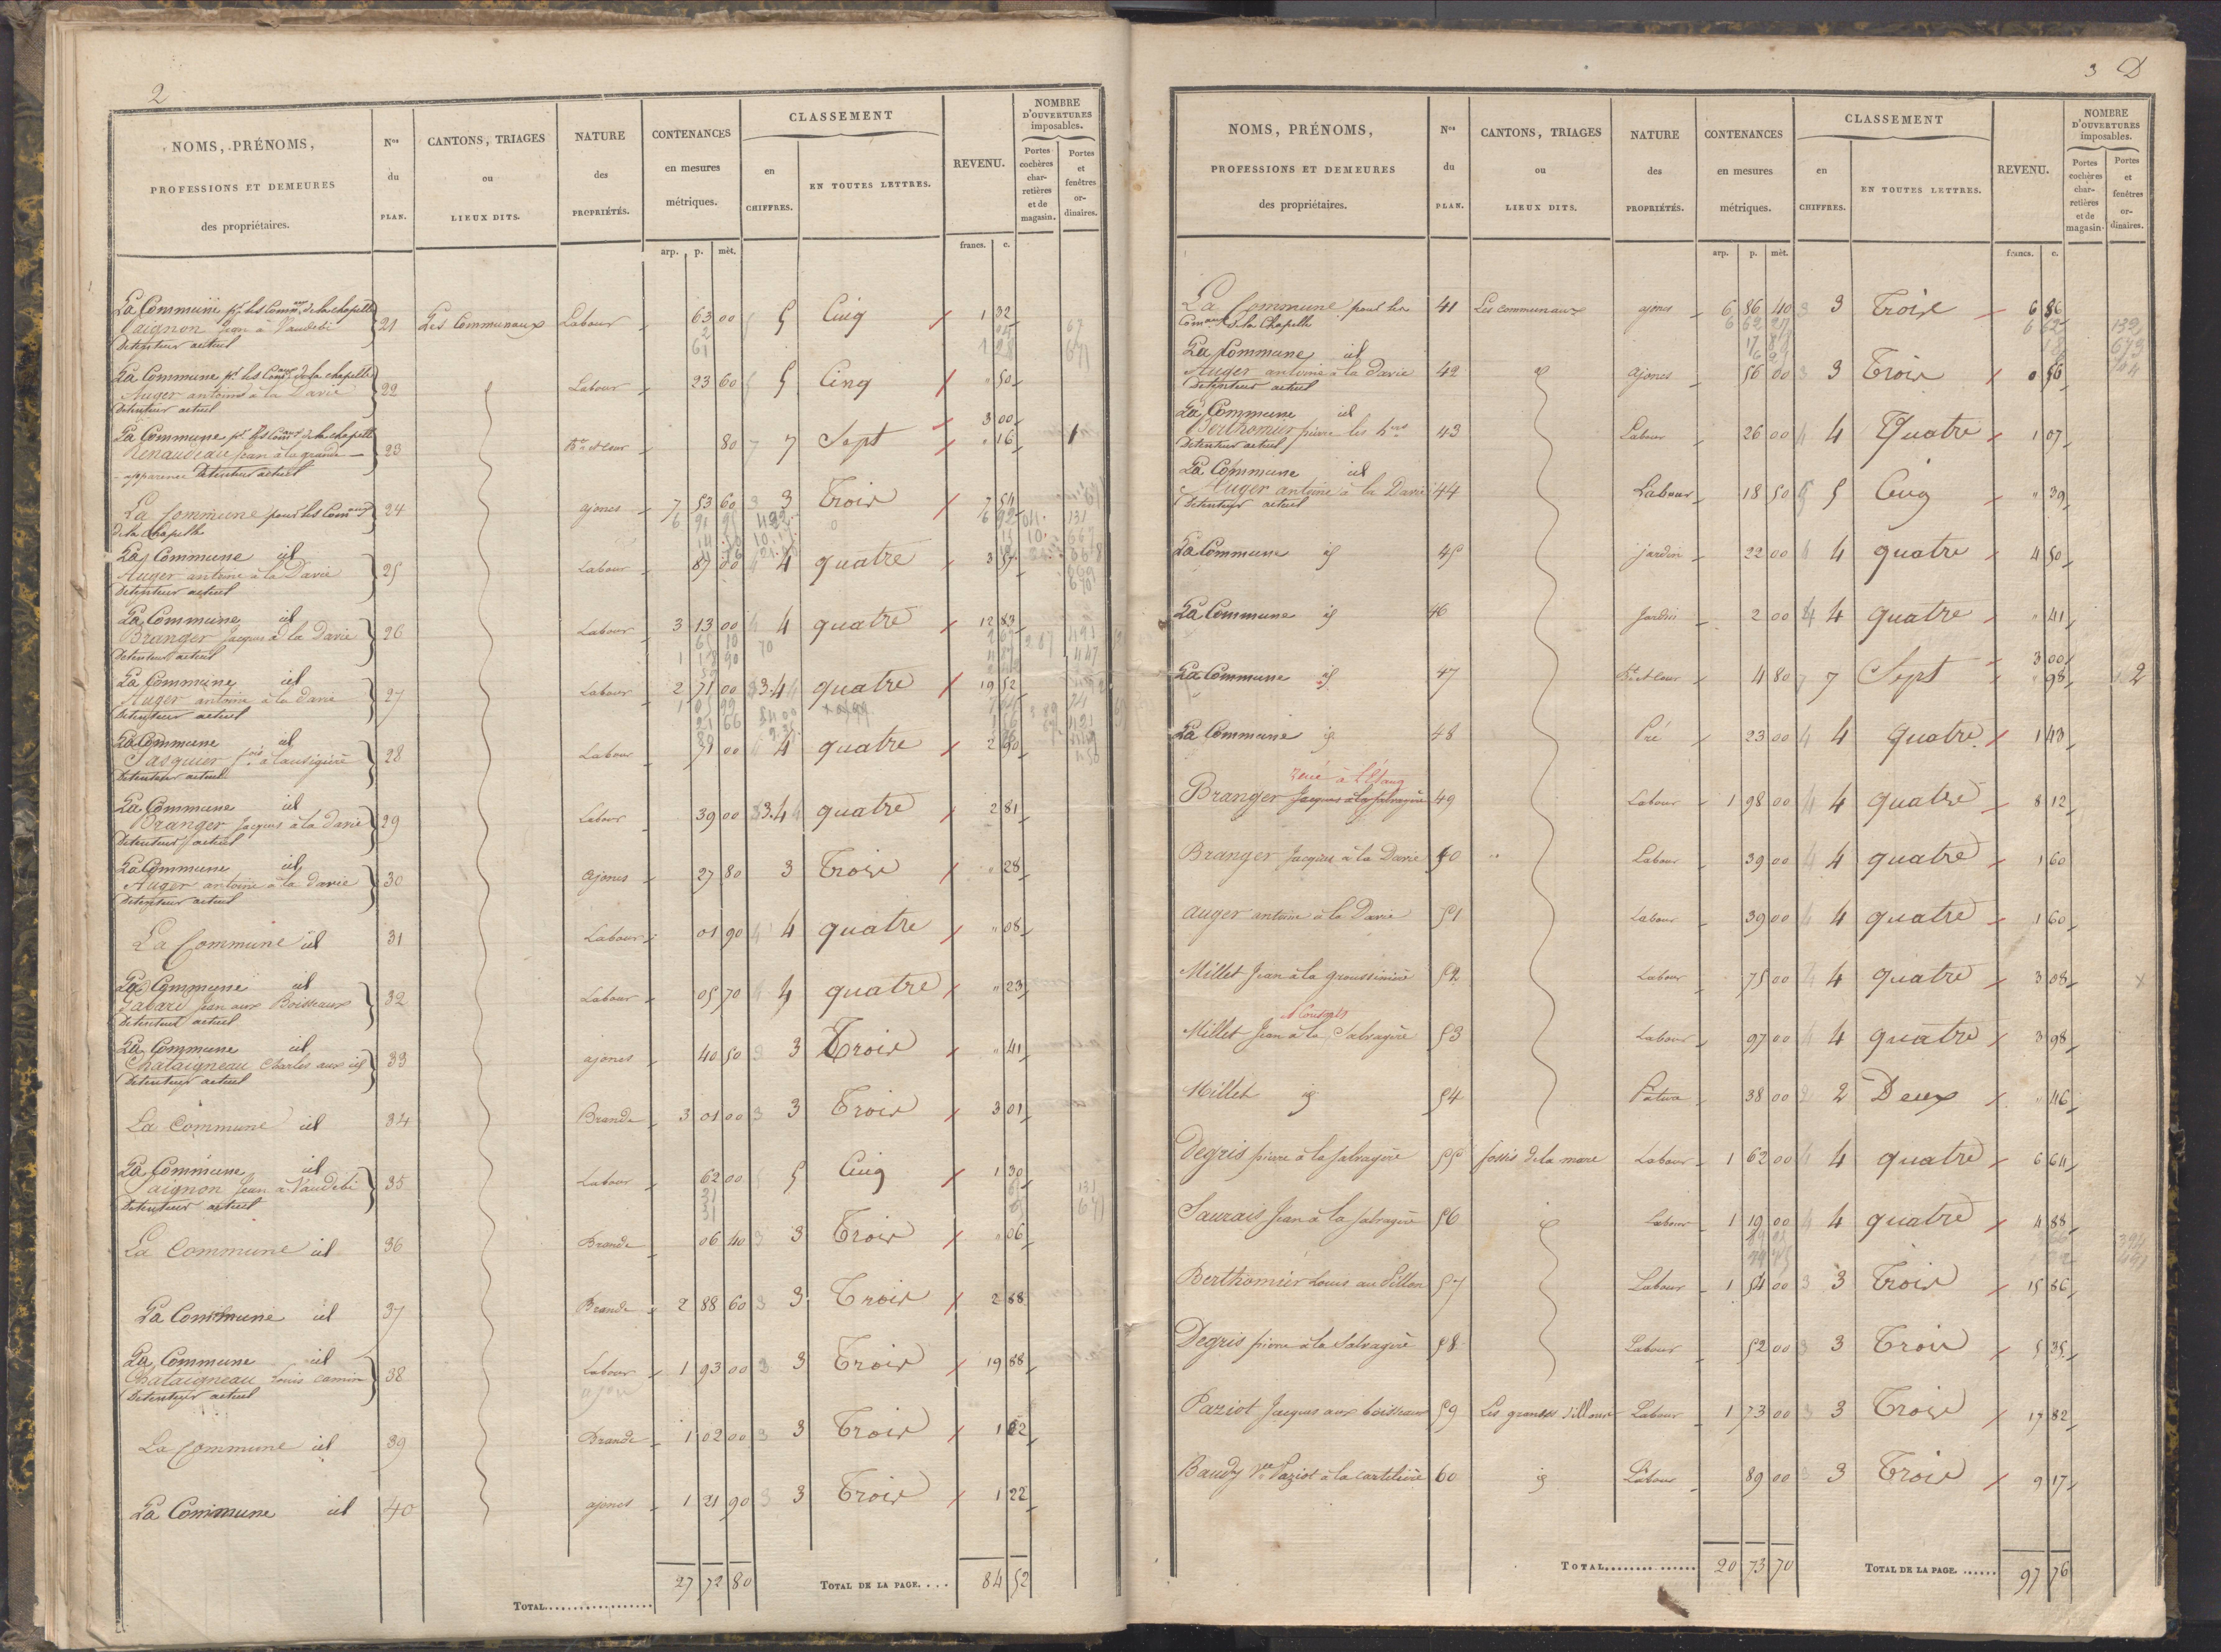 2
NOMS, PRÉNOMS,
PROFESSIONS ET DEMEURES
des propriétaires.
Nos
du
PLAN.
CANTONS, TRIAGES
ou
LIEUX DITS.
NATURE
des
PROPRIÉTÉS.
CONTENANCES
en mesures
métriques.
arp. p. mèt.
CLASSEMENT
en
CHIFFRES.
EN TOUTES LETTRES.
REVENU.
francs. c.
NOMBRE
D'OUVERTURES
imposables.
Portes
cochères
char-
retières
et de
magasin.
Portes
et
fenêtres
or-
dinaires.
La Commune pr les Comaux de la chapelle
Paignon Jean à Vaudebi 21 Les Communaux Labour 63 00 5 Cinq 1 32
Détenteur actuel
La Commune pr les Comaux de la chapelle
Auger antoine à la Davié 22 Labour 23 60 5 Cinq " 50
Détenteur actuel
La Commune pr les Comaux de la chapelle 3 00
Renaudeau Jean à la grande 23 Bnt et cour 80 7 Sept " 16 1
apparence Détenteur actuel
La Commune pour les Comaux 24 ajones 7 53 60 3 Trois 7 54
de la Chapelle
La Commune id
Auger antoine à la Davié 25 Labour 87 00 4 quatre 3 57
Détenteur actuel
La Commune id
Branger Jacques à la Davié 26 Labour 3 13 00 4 quatre 12 83
Détenteur actuel
La Commune id
Auger antoine à la Davié 27 Labour 2 71 00 3.4 quatre 19 52
Détenteur actuel
La Commune id
Pasquier 28 Labour 71 00 4 quatre 2 90
Détenteur actuel
La Commune id
Branger Jacques à la Davié 29 Labour 39 00 3.4 quatre 2 81
Détenteur actuel
La Commune id
Auger antoine à la Davié 30 ajones 27 80 3 Trois " 28
Détenteur actuel
La Commune id 31 Labour 01 90 4 quatre " 08
La Commune id
Gabard Jean aux Boisseaux 32 Labour 05 70 4 quatre " 23
Détenteur actuel
La Commune id
Chataigneau Charles aux id 33 ajones 40 50 3 Trois " 41
Détenteur actuel
La Commune id 34 Brande 3 01 00 3 Trois 3 01
La Commune id
Paignon Jean à Vaudebi 35 Labour 62 00 5 Cinq 1 30
Détenteur actuel
La Commune id 36 Brande 06 40 3 Trois " 06
La Commune id 37 Brande 2 88 60 3 Trois 2 88
La Commune id
Chataigneau Louis Camin 38 Labour 1 93 00 3 Trois 19 88
Détenteur actuel
La Commune id 39 Brande 1 02 00 3 Trois 1 02
La Commune id 40 ajones 1 21 90 3 Trois 1 22
TOTAL 27 72 80 TOTAL DE LA PAGE.... 84 52
3 D
NOMS, PRÉNOMS,
PROFESSIONS ET DEMEURES
des propriétaires.
Nos
du
PLAN.
CANTONS, TRIAGES
ou
LIEUX DITS.
NATURE
des
PROPRIÉTÉS.
CONTENANCES
en mesures
métriques.
arp. p. mèt.
CLASSEMENT
en
CHIFFRES.
EN TOUTES LETTRES.
REVENU.
francs. c.
NOMBRE
D'OUVERTURES
imposables.
Portes
cochères
char-
retières
et de
magasin.
Portes
et
fenêtres
or-
dinaires.
La Commune pour les 41 Les communaux ajones 6 86 40 3 Trois 6 86
Comaux de la Chapelle
La Commune id
Auger antoine à la Davie 42 id ajones 56 00 3 Trois 0 56
Détenteur actuel
La Commune id
Berthomier pierre les hers 43 Labour 26 00 4 Quatre 1 07
Détenteur actuel
La Commune id
Auger antoine à la Davié 44 Labour 18 50 5 Cinq " 39
Détenteur actuel
La Commune id 45 jardin 22 00 4 quatre 4 50
La Commune id 46 Jardin 2 00 4 quatre " 41
3 00
La Commune id 47 Bt et cour 4 80 7 Sept " 98 2
La Commune id 48 Pré 23 00 4 Quatre 1 43
René à l'Etang
Branger Jacques à la Salvagère 49 Labour 1 98 00 4 quatre 8 12
Branger Jacques à la Davié 50 Labour 39 00 4 quatre 1 60
auger antoine à la Davie 51 Labour 39 00 4 quatre 1 60
Millet Jean à la groussinière 52 Labour 75 00 4 quatre 3 08
Millet Jean à la Salvagère 53 Labour 97 00 4 quatre 3 98
Millet id 54 Pature 38 00 2 Deux " 46
Degris pierre à la salvagère 55 fossés de la mare Labour 1 62 00 4 quatre 6 64
Saurais Jean à la salvagère 56 id Labour 1 19 00 4 quatre 4 88
Berthomier Louis au Sillon 57 Labour 1 54 00 3 Trois 15 86
Degris pierre à la Salvagère 58 Labour 52 00 3 Trois 5 35
Paziot Jacques aux boisseaux 59 Les grands Sillons Labour 1 73 00 3 Trois 17 82
Baudy Vve Paziot à la cartelière 60 id Labour 89 00 3 Trois 9 17
TOTAL 20 73 70 TOTAL DE LA PAGE. 97 76